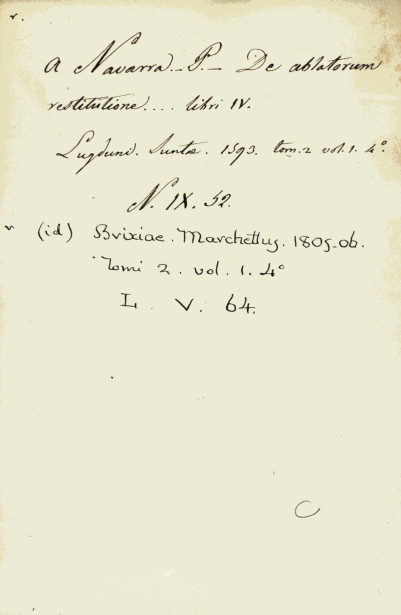 v.
A Navarra - P. - De ablatorum
restitutione .... libri IV.
Lugduni. Juntæ. 1593. tom. 2 vol. 1. 4º.
N. IX. 52.
v (id) Brixiae. Marchettus. 1805-06.
Tomi 2. vol. 1. 4º
L. V. 64.
C